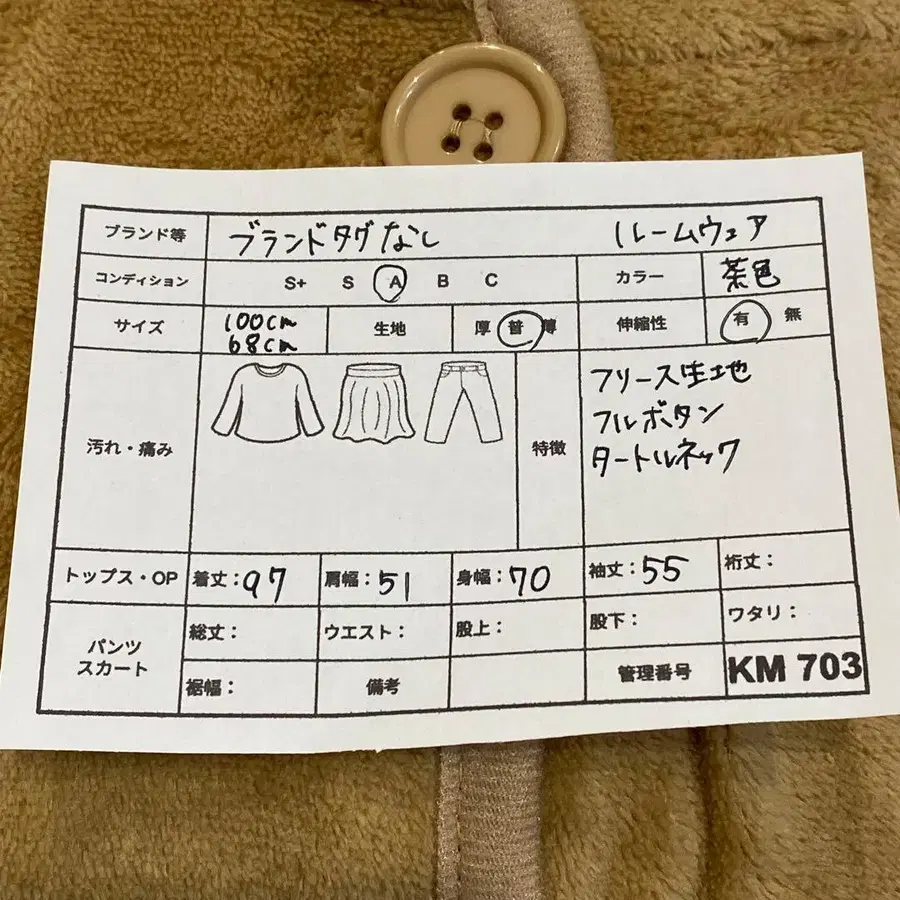 ブランド等 ブランドタグなし ルームウェア
コンディション S+ S A B C カラー 茶色
サイズ 100cm 68cm 生地 厚 普 薄 伸縮性 有 無
汚れ・痛み 特徴 フリース生地
フルボタン
タートルネック
トップス・OP 着丈:97 肩幅:51 身幅:70 袖丈:55 裄丈:
パンツ スカート 総丈: ウエスト: 股上: 股下: ワタリ:
裾幅: 備考 管理番号 KM 703